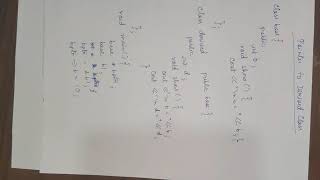 Pointer to Derived Class
class base {
public:
int b;
void show () {
cout << "\n b = " << b; }
};
class derived : public base {
public:
int d;
void show () {
cout << "\n b = " << b
cout << "\n d = " << d;
}
};
void main () {
base * bptr;
base b1;
bptr = & b1;
bptr -> b = 10;